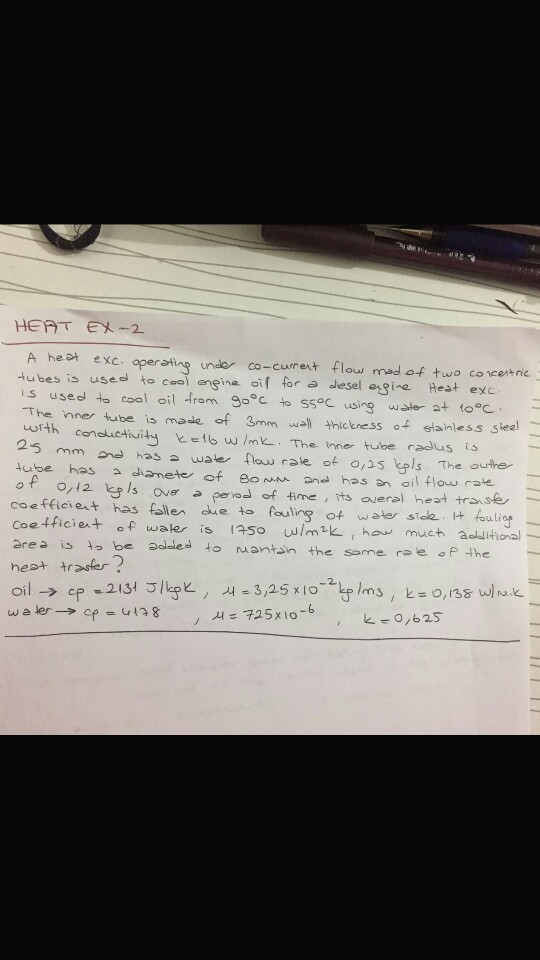 HEAT EX-2
A heat exc. operating under co-current flow mad of two concentric
tubes is used to cool engine oil for a diesel engine. Heat exc.
is used to cool oil from 90°C to 55°C using water at 10°C.
The inner tube is made of 3mm wall thickness of stainless steel
with conductivity k=16 w/mk. The inner tube radius is
25 mm and has a water flow rate of 0,25 kg/s. The outher
tube has a diameter of 80 mm and has an oil flow rate
of 0,12 kg/s. Over a period of time, its overal heat transfer
coefficient has fallen due to fouling of water side. If fouling
coefficient of water is 1750 W/m²K, how much additional
area is to be added to mantain the same rate of the
heat trasfer?
Oil → cp = 2131 J/kgK, μ = 3,25x10⁻² kg/ms, k = 0,138 W/m.K
Water → cp = 4178 , μ = 725x10⁻⁶ , k = 0,625